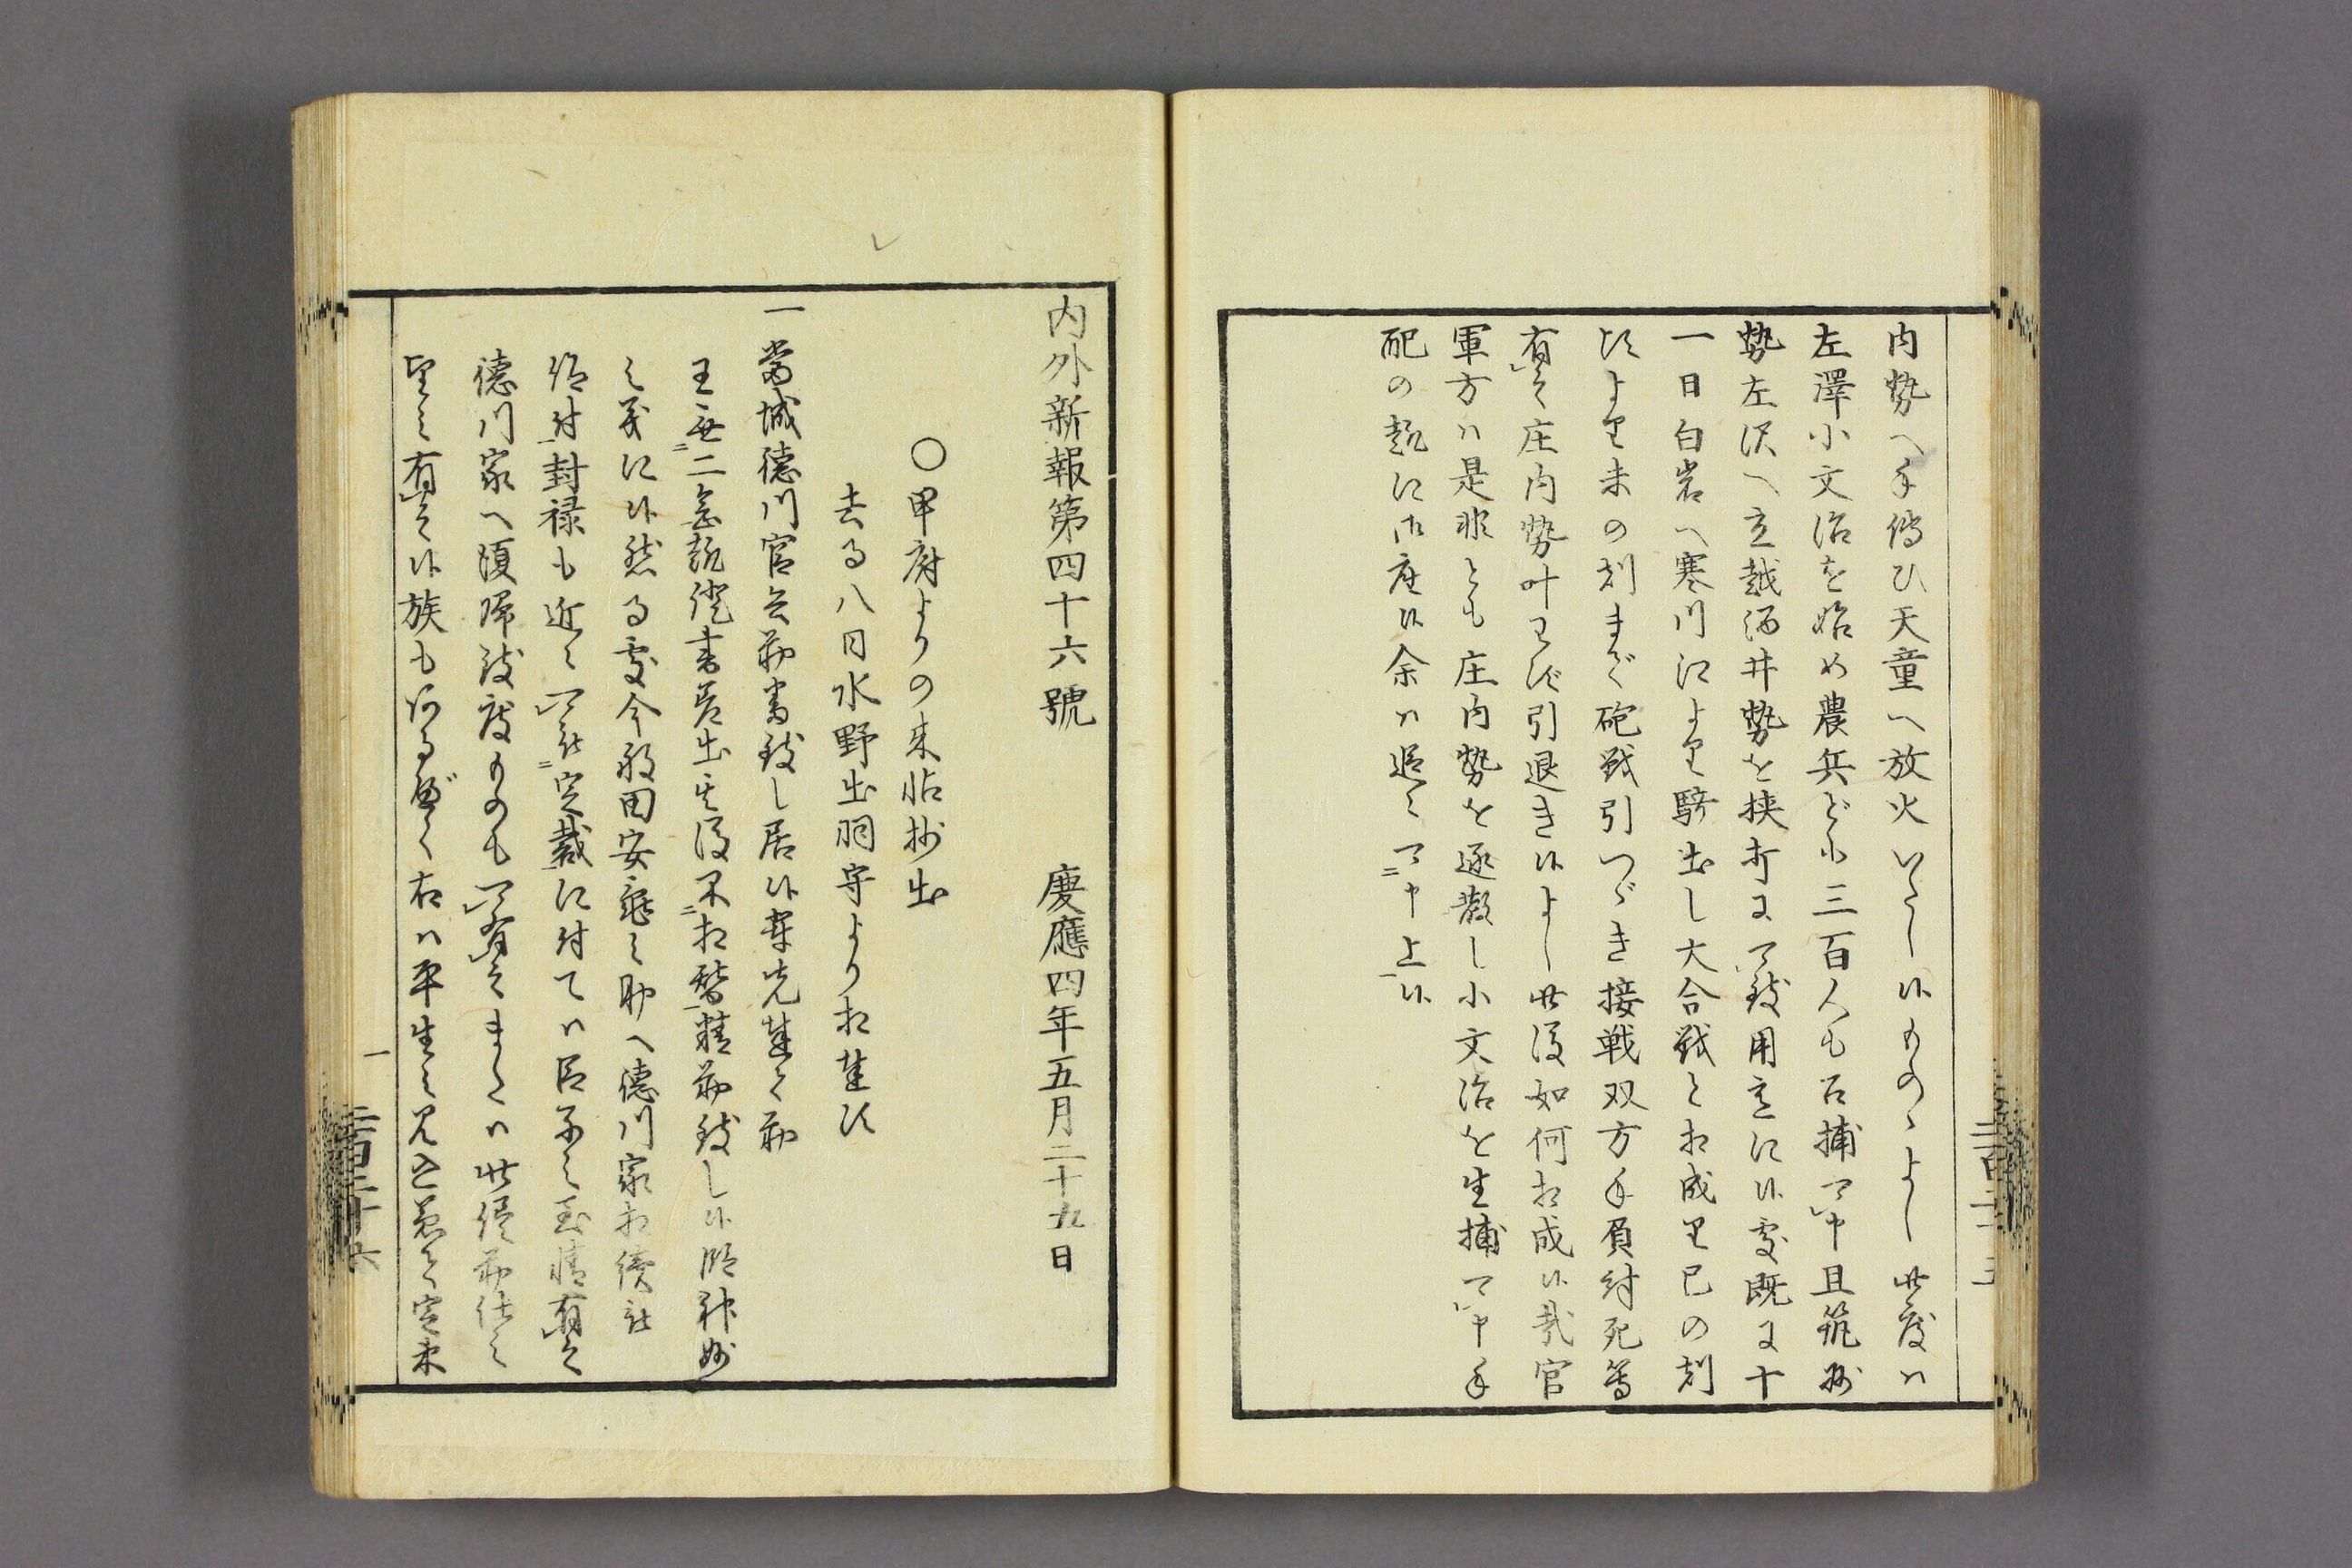 内勢へ手傳ひ天童へ放火いたし候ものゝよし此度ハ
左澤小文治を始め農兵ども三百人も召捕可申且筑州
勢左沢へ立越酒井勢を挟打に可致用意に候処既に十
一日白岩へ寒川江より騎出し大合戦と相成り巳の刻
頃より未の刻まで砲戦引つゞき接戦双方手負討死等
有之庄内勢叶わず引退き候よし此後如何相成候哉官
軍方ハ是非とも庄内勢を逐散し小文治を生捕可申手
配の趣に御座候余ハ追々可申上候
内外新報第四十六號
慶應四年五月二十九日
○甲府よりの来帖抄出
去る八日水野出羽守より相達候
一當城徳川官兵勤番致し居候輩先達て勤
王無二念趣證書差出其後不相替精勤致し候段神妙
之義に候然る處今般田安亀之助へ徳川家相續被
仰付封禄も近々可被定裁に付てハ臣子之至情有之
徳川家へ復帰致度ものも可有之またハ此侭勤仕之
望み有之候族も何るべく右ハ平生之見込若又定末
一
二百三十六